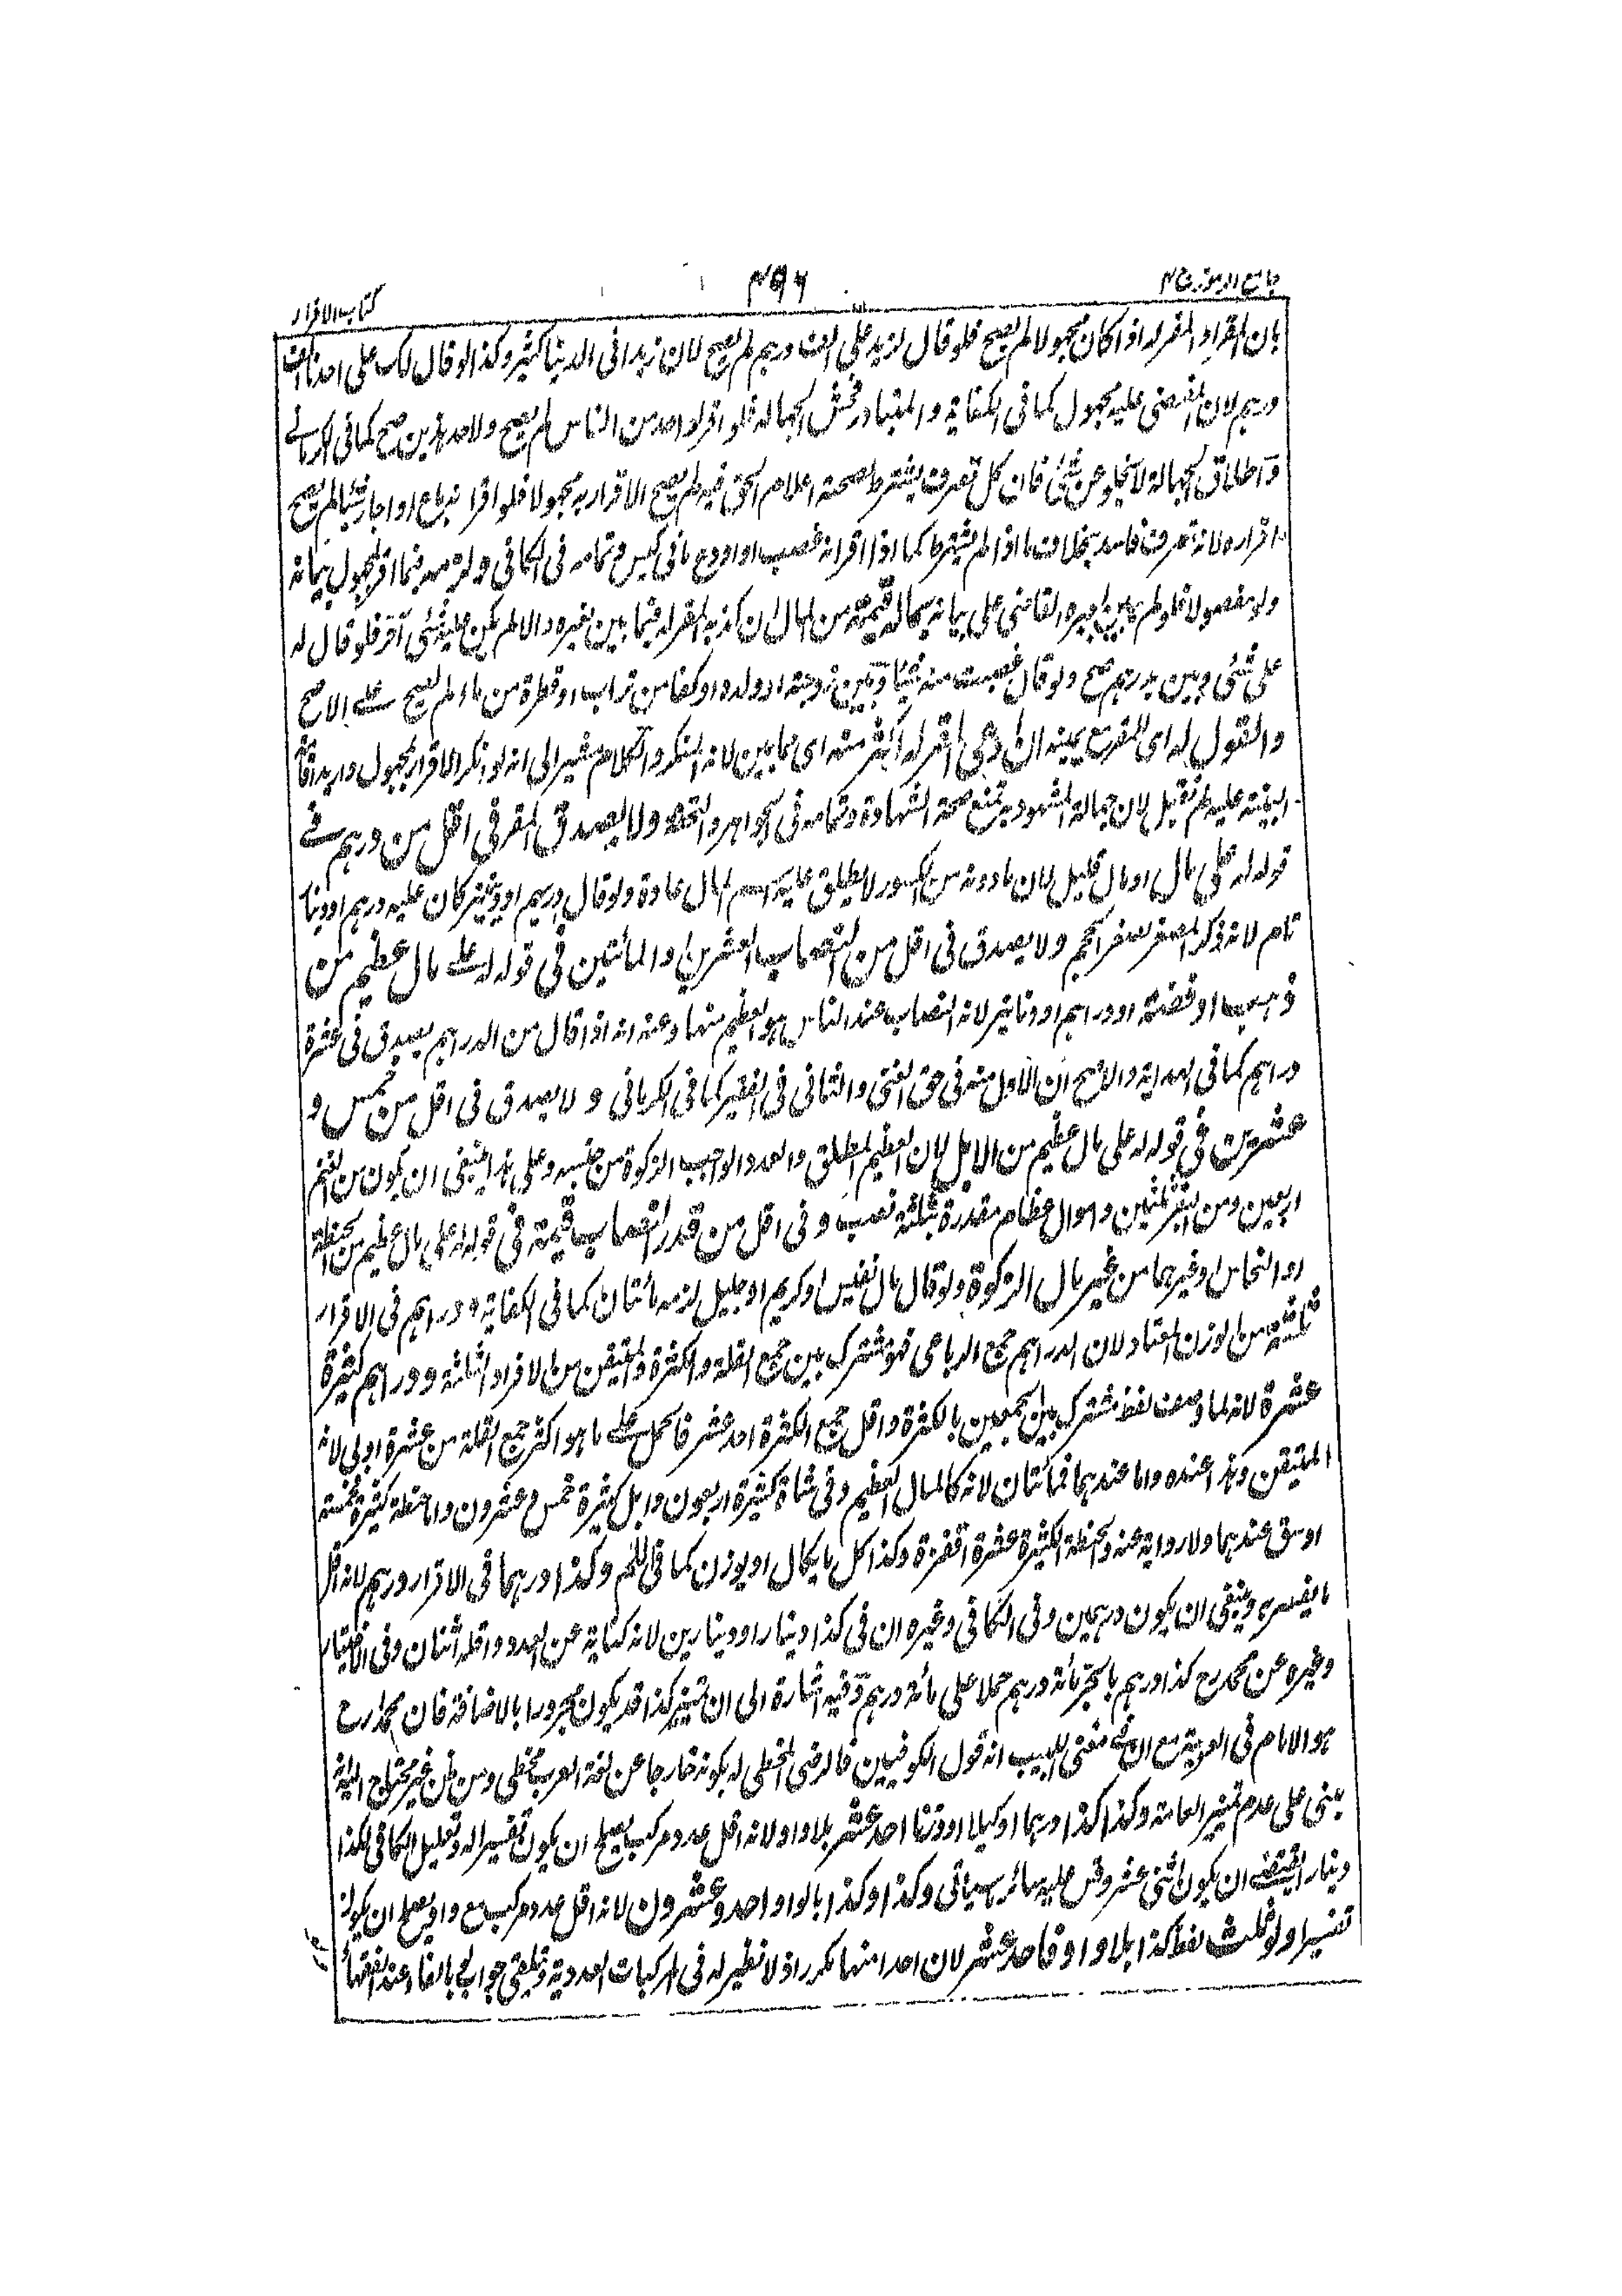 جامع الرموز ج ۲
۴۹۶
كتاب الاقرار
بان المقر او المقر له اذا كان مجهولا لم يصح فلو قال لزيد على الف درهم لم يصح لان زيدا فى الدنيا كثير وكذا لو قال لك على احدنا الف
درهم لان المقضى عليه مجهول كما فى الكفاية والمتبادر فحش الجهالة فلو اقر لواحد من الناس لم يصح ولاحد هذين صح كما فى الكرمانے
واطلاق الجهالة لا يخلو عن شئ فان كل تصرف يشترط لصحته اعلام الحق فيه لم يصح الاقرار به مجهولا فلو اقر انه باع او اجار شيئا لم يصح
اقراره لانه تصرف فاسد بخلاف ما اذا لم يشترط كما اذا اقر انه غصب او اودع ما فى كيس وتمامه فى الكافى ولزمه فيما اقر لمجهول بيانه
ولو مفصولا فلو لم يبين اجبره القاضى على بيانه بما له قيمة من المال ان كذبه المقر له فيما بين بغيره والا لم يكن عليه شئ آخر فلو قال له
على شئ وبين بدرهم صح ولو قال غصبت منه شيئا وبين زوجته او ولده او كفا من تراب او قطرة من ماء لم يصح علے الاصح
والقول له اى للمقر مع يمينه ان ادعى المقر له اكثر منه اى مما بين لانه المنكر والكلام مشير الى انه لو انكر الاقرار بمجهول واريد اقامة
البينة عليه لم تقبل لان جهالة المشهود به تمنع صحة الشهادة وتمامه فى الجواهر والتحفة ولا يصدق المقر فى اقل من درهم فے
قوله له على مال او مال قليل لان ما دونه من الكسور لا يطلق عليه اسم المال عادة ولو قال دريهم او دنينير كان عليه درهم او دينار
تام لانه ذكر المصغر لصغر الحجم ولا يصدق فى اقل من النصاب العشرين او المائتين فى قوله له علے مال عظيم من
ذهب او فضة او دراهم او دنانير لانه النصاب عند الناس هو العظيم منها وعنه انه اذا قال من الدراهم يصدق فى عشرة
دراهم كما فى الهداية والاصح ان الاول منه فى حق الغنى والثانى فى الفقير كما فى الكرمانى و لا يصدق فى اقل من خمس و
عشرين فى قوله له على مال عظيم من الابل لان العظيم المطلق والعدد الواجب الزكوة من جنسه وعلى هذا ينبغى ان يكون من الغنم
اربعين ومن البقر ثلثين واموال عظام مقدرة بثلثة نصب و فى اقل من قدر النصاب قيمة فى قوله له على مال عظيم من الحنطة
او النحاس وغيرهما من غير مال الزكوة ولو قال مال نفيس او كريم او جليل لزمه مائتان كما فى الكفاية ودراهم فى الاقرار
ثلثة من الوزن المعتاد لان الدراهم جمع الرباعى فهو مشترك بين جمع القلة والكثرة والمتيقن من الافراد الثلثة و دراهم كثيرة
عشرة لانه لما وصف لفظ مشترك بين الجمعين بالكثرة واقل جمع الكثرة احد عشر فالحمل علے ما هو اكثر جمع القلة من عشرة اولى لانه
المتيقن وهذا عنده واما عندهما فمائتان لانه كالمال العظيم وفى شاة كثيرة اربعون وابل كثيرة خمس وعشرون واما حنطة كثيرة فخمسة
اوسق عندهما ولا رواية عنه والحنطة الكثيرة عشرة اقفزة وكذا كل ما يكال او يوزن كما فى وكذا درهما فى الاقرار درهم لانه اقل
ما يفسر به وينبغى ان يكون درهمين وفى الكافى وغيره ان فى كذا دينارا دينارين لانه كناية عن العدد واقله اثنان وفى الاختيار
وغيره عن محمد رح كذا درهم بالجر مائة درهم حملا على مائة درهم وفيه اشارة الى ان تمييز كذا قد يكون مجرورا بالاضافة فان محمد رح
هو الامام فى العربية مع ان فى مغنى اللبيب انه قول الكوفيين فالرضى المخطى له بكونه خارجا عن لغة العرب مخطى ومن ظن غير محتاج اليه
يبنى على عدم تمييز العامة وكذا كذا درهما او كيلا او وزنا احد عشر بلا واو لانه اقل عدد مركب يصلح ان يكون تفسيرا له وتعليل الكافى لكذا
دينارا يقتضے ان يكون اثنى عشر وقس عليه سائر ما ياتى وكذا وكذا بالواو احد وعشرون لانه اقل عدد مركب مع واو يصلح ان يكون
تفسيرا ولو ثلث لفظ كذا بلا واو فاحد عشر لان احدا منها مكرر اذ لا نظير له فى المركبات العددية وتلقى جواب لو بالفاء عند الفقهاء